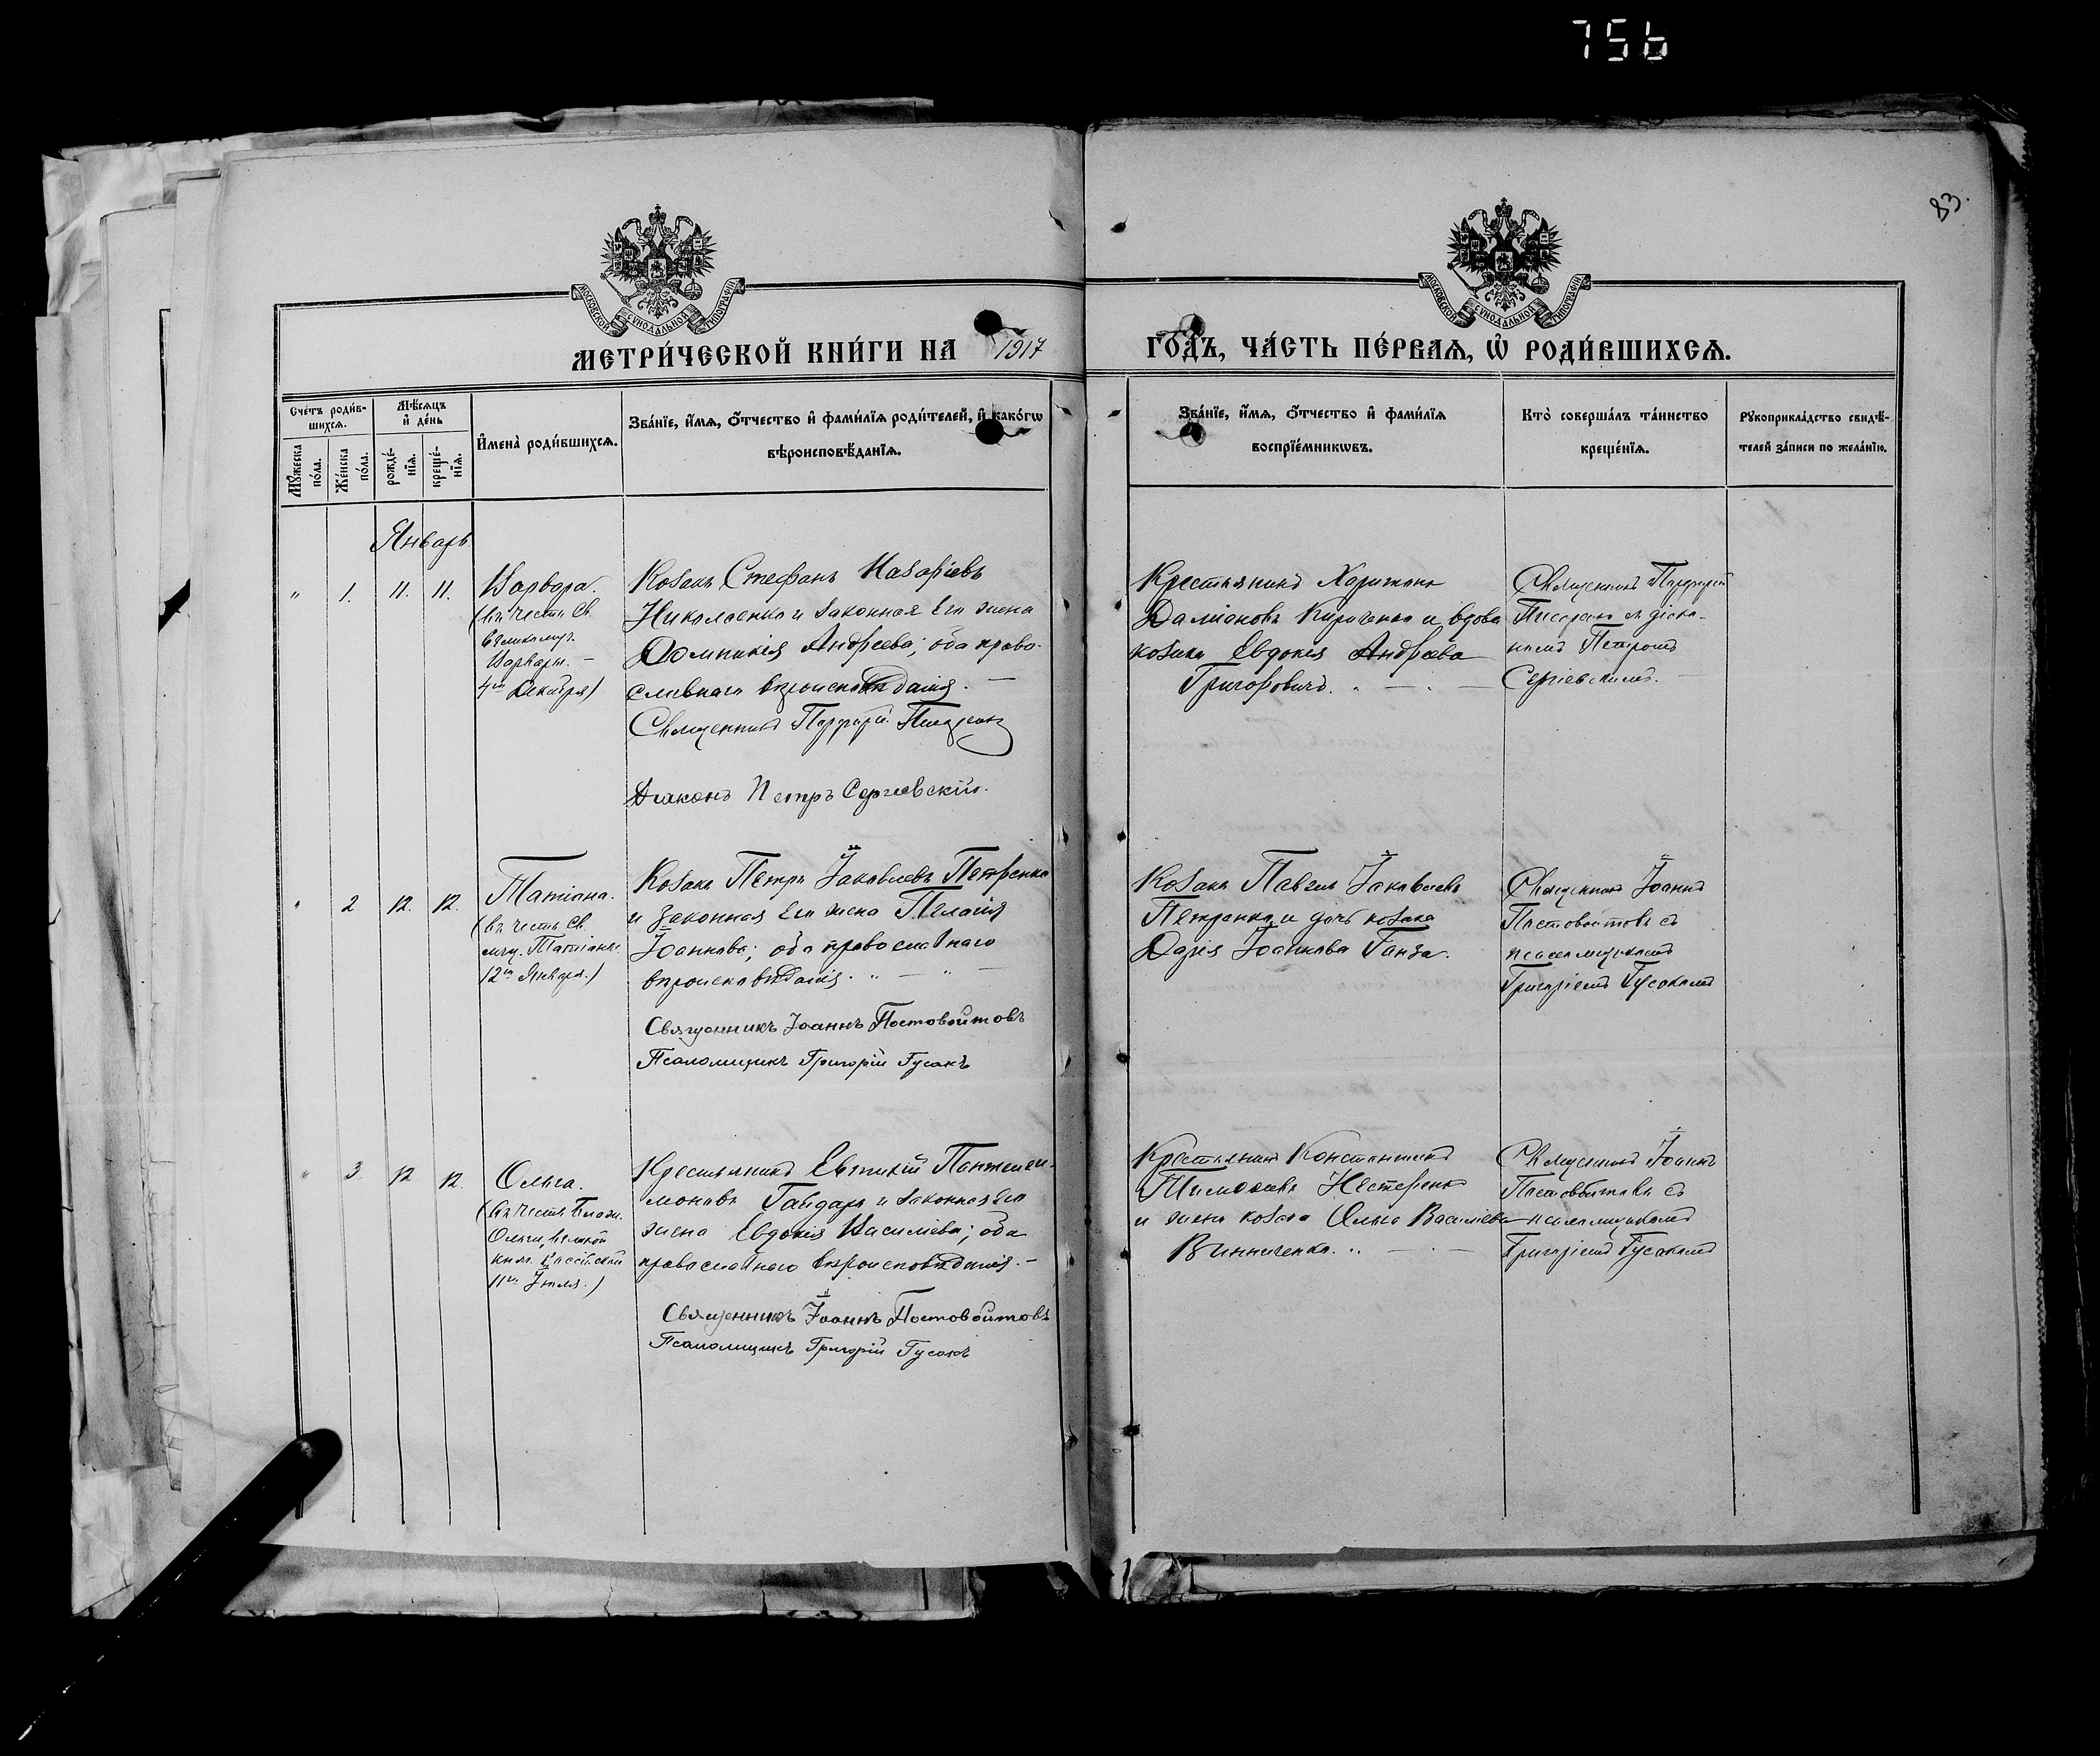 756
83.
МОСКОВСКОЙ СѴНОДАЛЬНОЙ ТИПОГРАФІИ
МОСКОВСКОЙ СѴНОДАЛЬНОЙ ТИПОГРАФІИ
МЕТРИ́ЧЕСКОЙ КНИ́ГИ НА 1917
ГО́ДЪ, ЧА́СТЬ ПЕ́РВАѦ, Ѡ҆ РОДИ́ВШИХСѦ.
Сче́тъ роди́в-
шихсѧ.
Мꙋ́жеска
по́ла.
Же́нска
по́ла.
Мѣ́сѧцъ
и҆ де́нь
рожде́-
нїѧ.
креще́-
нїѧ.
И҆мена̀ роди́вшихсѧ.
Зва́нїе, и҆́мѧ, ѻ҆́тчество и҆ фами́лїѧ роди́телей, и҆ како́гѡ
вѣроисповѣ́данїѧ.
Зва́нїе, и҆́мѧ, ѻ҆́тчество и҆ фами́лїѧ
воспрїе́мникѡвъ.
Кто̀ соверша́лъ та́инство
креще́нїѧ.
Рꙋкоприкла́дство свидѣ́-
телей за́писи по жела́нїю.
Январь
" 1. 11. 11.
Варвара.
(въ честь Св.
великомуч.
Варвары. –
4го Декабря)
Козакъ Стефанъ Назаріевъ
Николаенко и законная его жена
Домникія Андреева; оба право-
славнаго вѣроисповѣданія. –
Священникъ Порфирій
Діаконъ Петръ Сергіевскій.
Крестьянинъ Харитонъ
Даміановъ Кириченко и вдова
козака Евдокія Андреева
Григоровичъ.
Священникъ Порфирій
діако-
номъ Петромъ
Сергіевскимъ.
" 2 12. 12.
Татіана.
(въ честь Св.
мчц. Татіаны.
12го Января.)
Козакъ Петръ Іаковлевъ Петренко
и законная его жена Пелагія
Іоаннова; оба православнаго
вѣроисповѣданія.
Священникъ Іоаннъ Постовойтовъ
Псаломщикъ Григорій Гусакъ
Козакъ Павелъ Іаковлевъ
Петренко и дочь козака
Дарія Іоаннова Ганза.
Священникъ Іоаннъ
Постовойтовъ съ
псаломщикомъ
Григоріемъ Гусакомъ
" 3 12 12.
Ольга.
(въ честь Блаж.
Ольги, великой
княг. Россійской
11го Іюля.)
Крестьянинъ Евтихій Пантелеи-
моновъ Гайдаръ и законная его
жена Евдокія Василіева; оба
православнаго вѣроисповѣданія. –
Священникъ Іоаннъ Постовойтовъ
Псаломщикъ Григорій Гусакъ
Крестьянинъ Константинъ
Тимоѳеевъ Нестеренко
и жена козака Ольга Василіева
Винниченко.
Священникъ Іоаннъ
Постовойтовъ съ
псаломщикомъ
Григоріемъ Гусакомъ